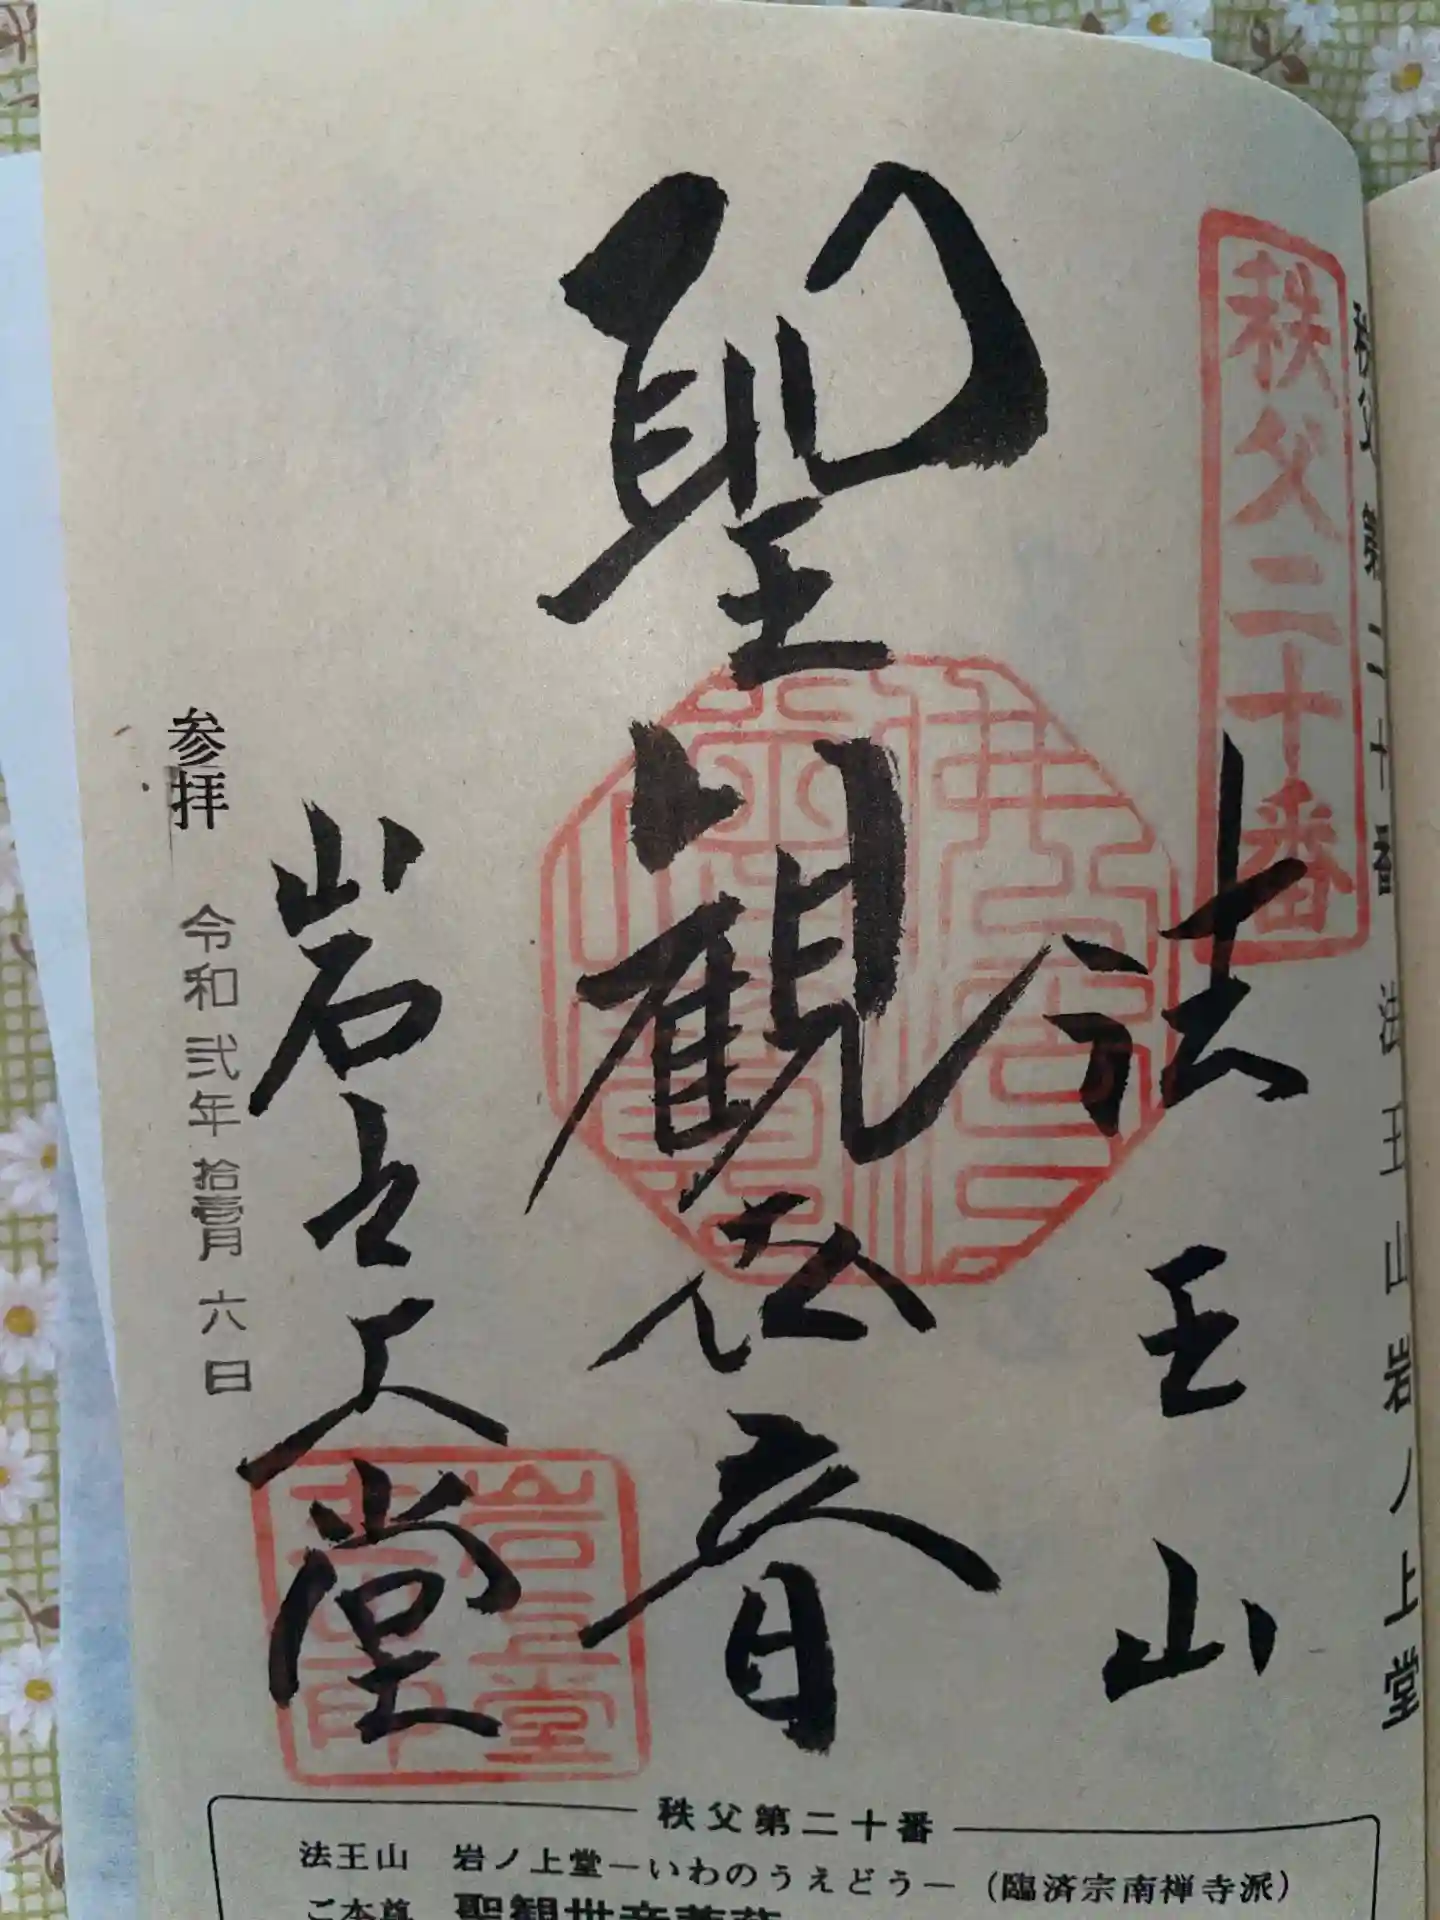 秩父第二十番 法王山岩ノ上堂
秩父二十番
法王山
聖観世音
岩之上堂
参拝 令和弐年拾壹月六日
秩父第二十番
法王山 岩ノ上堂―いわのうえどう―(臨済宗南禅寺派)
ご本尊 聖観世音菩薩